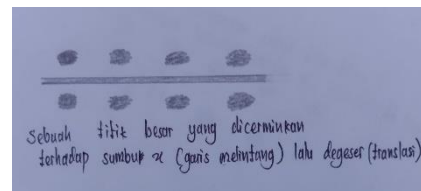 Sebuah titik besar yang dicerminkan
terhadap sumbur x (garis melintang) lalu degeser (translasi)